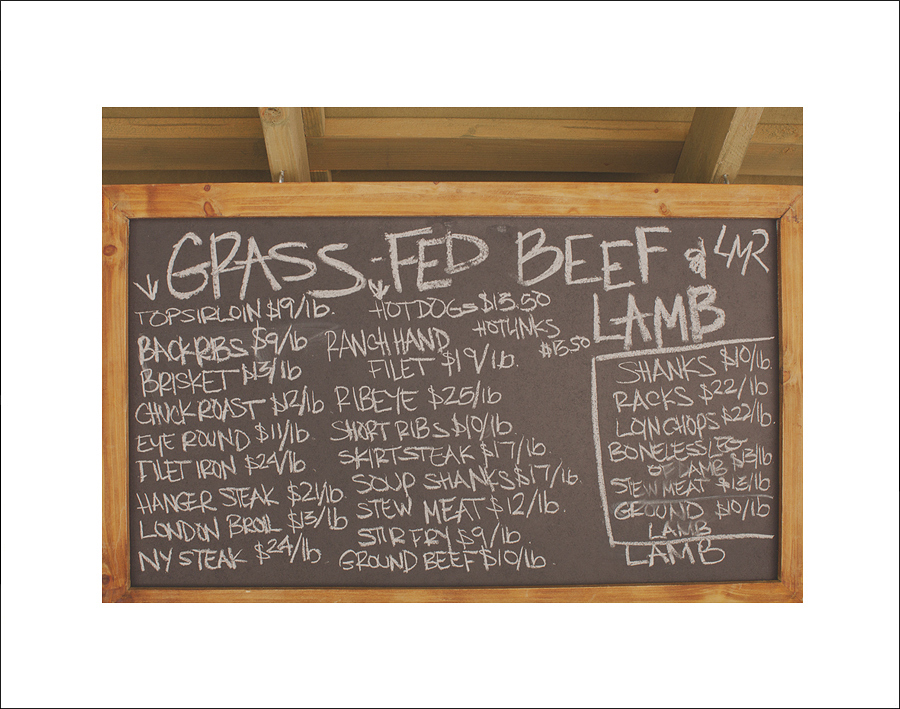 GRASS-FED BEEF & LMR
LAMB
TOPSIRLOIN $19/lb.
BACKRIBS $9/lb
BRISKET $13/lb
CHUCK ROAST $12/lb
EYE ROUND $11/lb
FILET IRON $24/lb
HANGER STEAK $21/lb
LONDON BROIL $13/lb
NY STEAK $24/lb
HOTDOGS $13.50
HOTLINKS
$13.50
RANCH HAND
FILET $19/lb.
RIBEYE $25/lb
SHORT RIBS $10/lb.
SKIRTSTEAK $17/lb.
SOUP SHANKS $17/lb.
STEW MEAT $12/lb.
STIR FRY $9/lb.
GROUND BEEF $10/lb.
SHANKS $10/lb.
RACKS $22/lb.
LOIN CHOPS $22/lb.
BONELESS LEG
OF LAMB $13/lb
STEW MEAT $13/lb
GROUND $10/lb
LAMB
LAMB